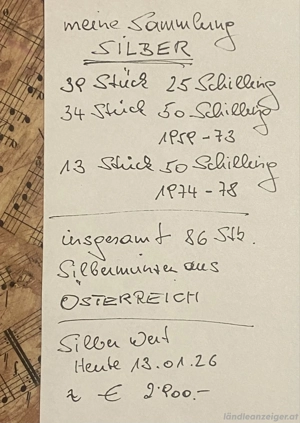 meine Sammlung
SILBER
39 Stück 25 Schilling
34 Stück 50 Schilling
1959-73
13 Stück 50 Schilling
1974-78
insgesamt 86 Stk.
Silbermünzen aus
ÖSTERREICH
Silber Wert
Heute 13.01.26
€ 2.900.-
ländleanzeiger.at